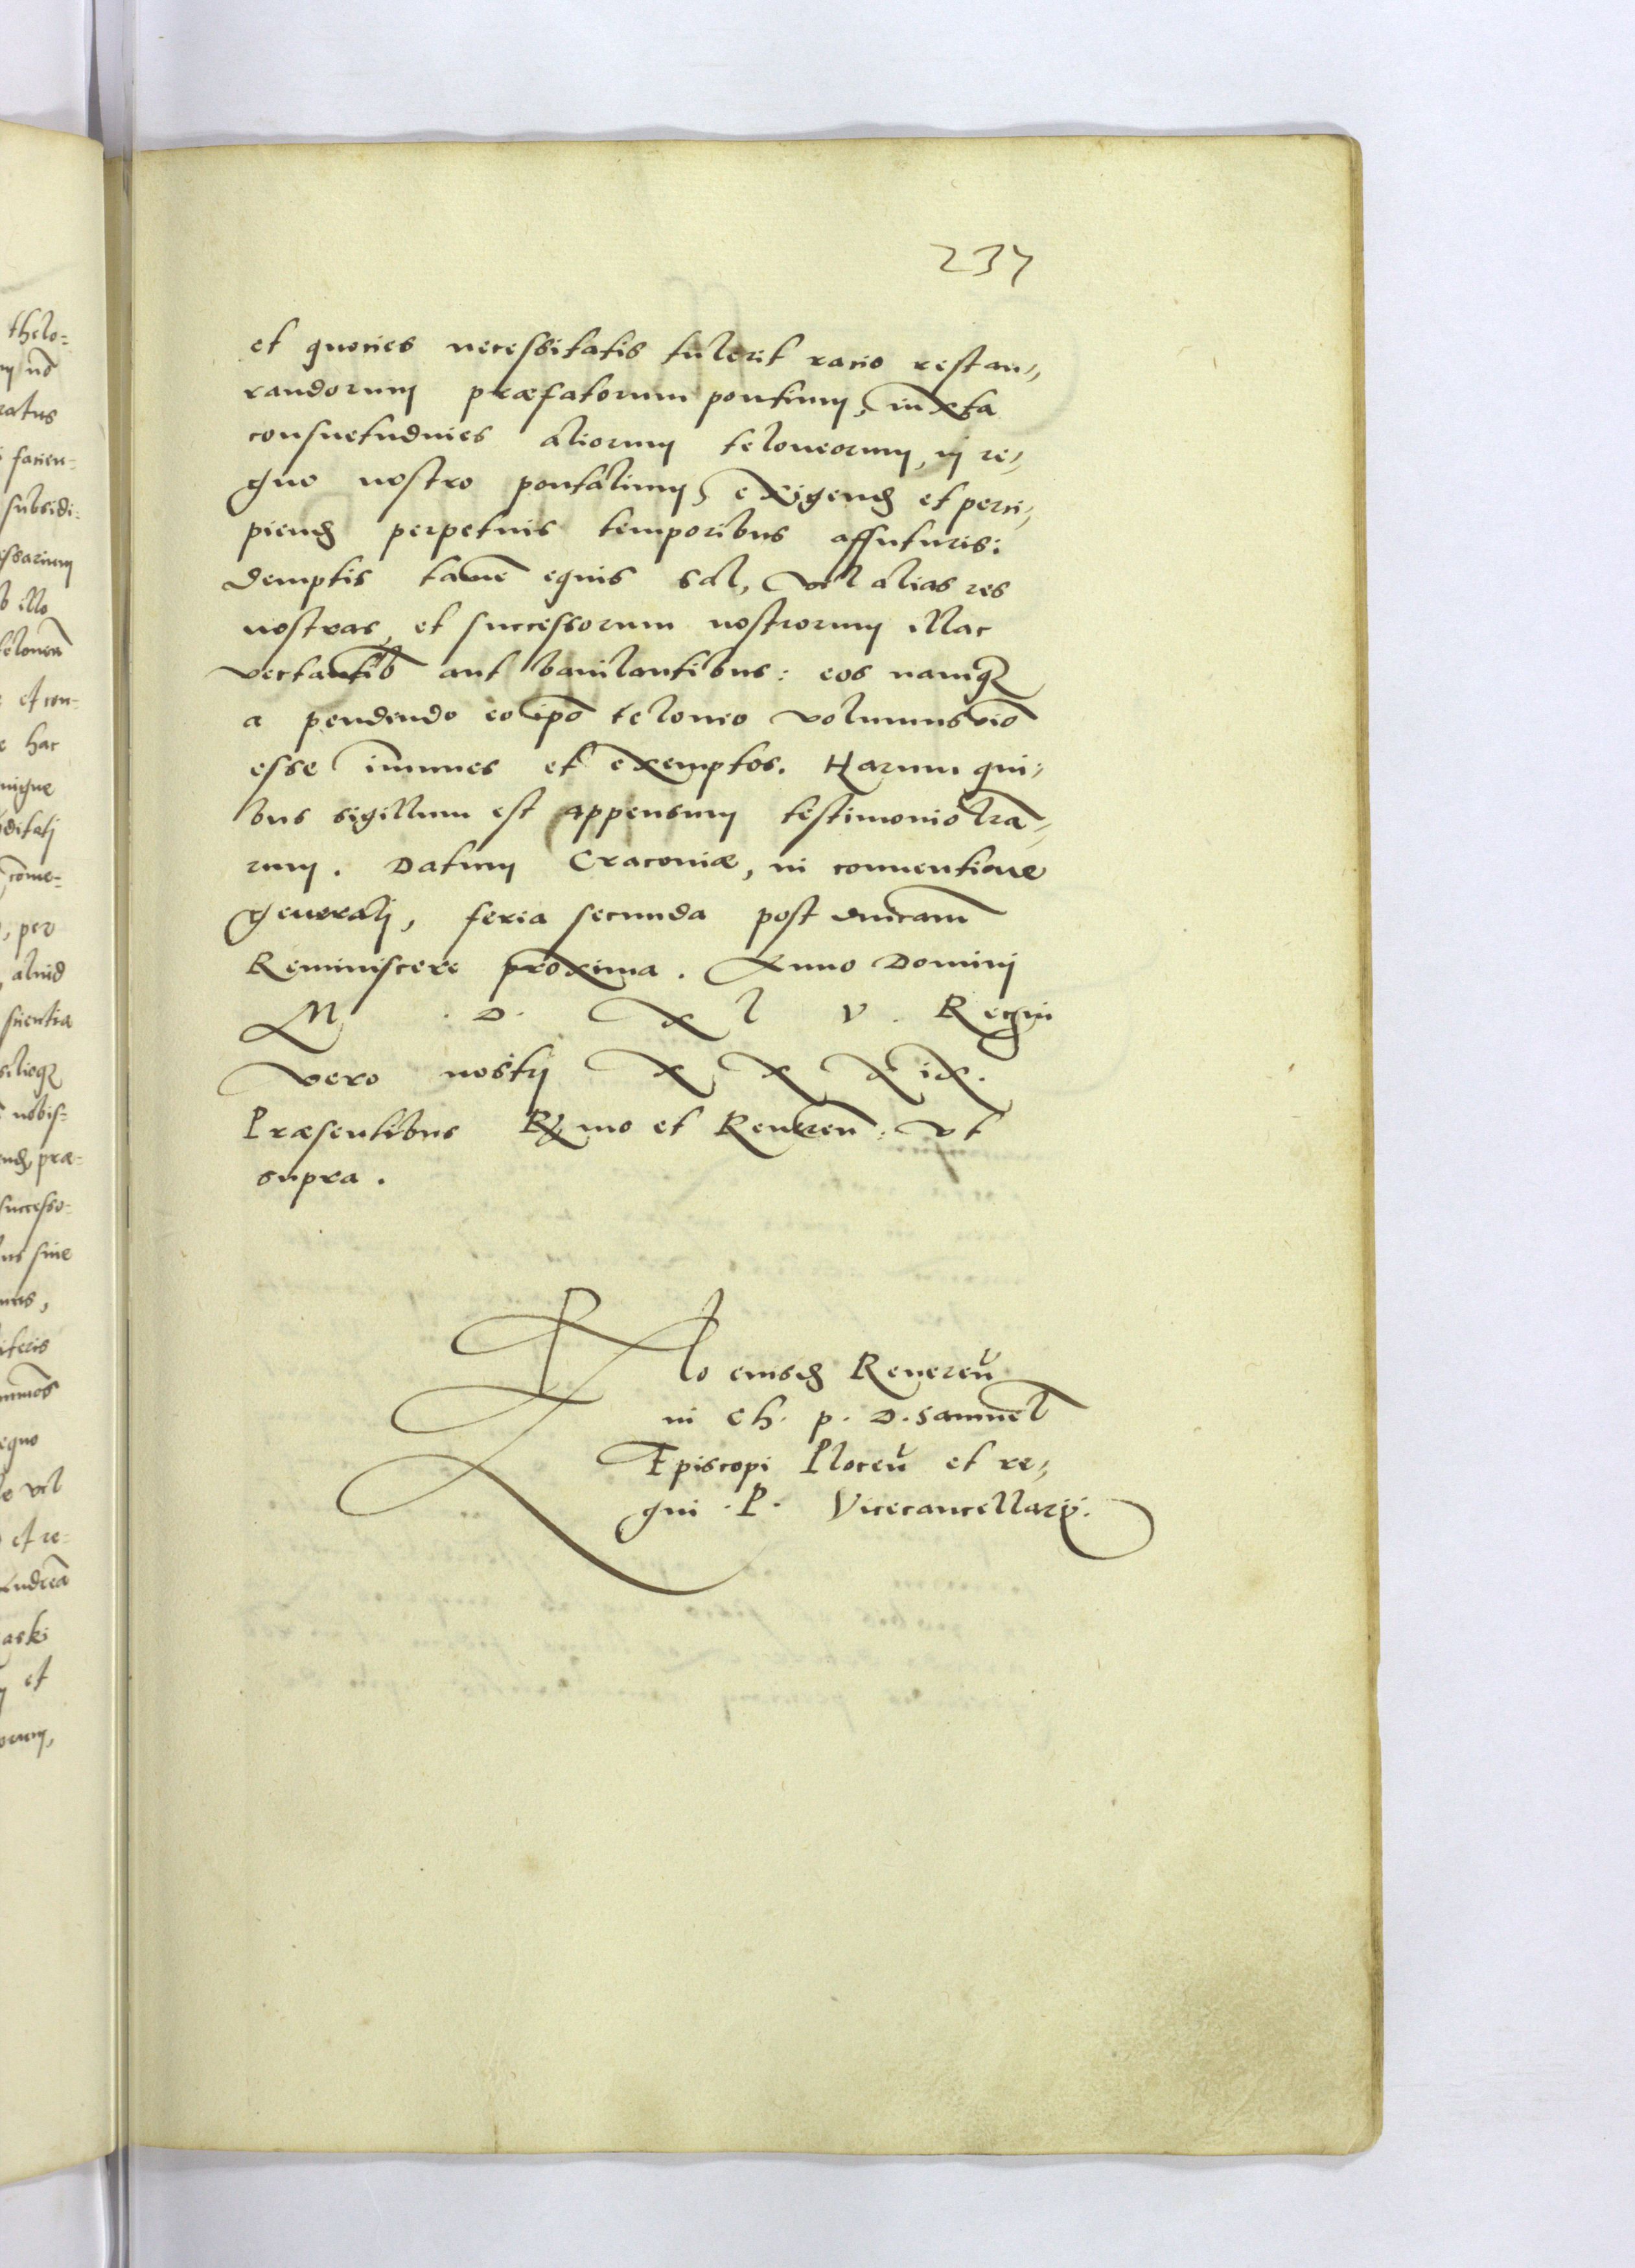 237
et quocies necessitatis tulerit racio restau„
randorum praefatorum pontium, iuxta
consuetudines aliorum teloneorum, in re„
gno nostro pontalium, exigend et perci„
piend perpetuis temporibus affuturis:
demptis tamē equis sal, vel alias res
nostras, et successorum nostrorum illac
vectantib aut baiulantibus: eos namq
a pendendo eo ipō teloneo volumus
esse immunes et exemptos. Harum qui„
bus sigillum est appensum testimonio lrā„
rum. Datum Cracoviae, in conuentione
generali, feria secunda post dnicam
Reminiscere proxima. Anno Domini
M . D . X L V . Regni
vero nostri X X X ix.
Praesentibus Rmo et Reueren: vt
supra.
Rlo eiusd Reuereñ
in Ch. p. D. Samuel
Episcopi Ploceñ et re„
gni . P . Vicecancellarii.
thelo=
ratus
facien=
subsidi=
issarium
illo
et con=
hac
nique
come=
, per
aliud
silioq
nobis=
prae=
successo=
siue
egno
vel
et re=
aski
et